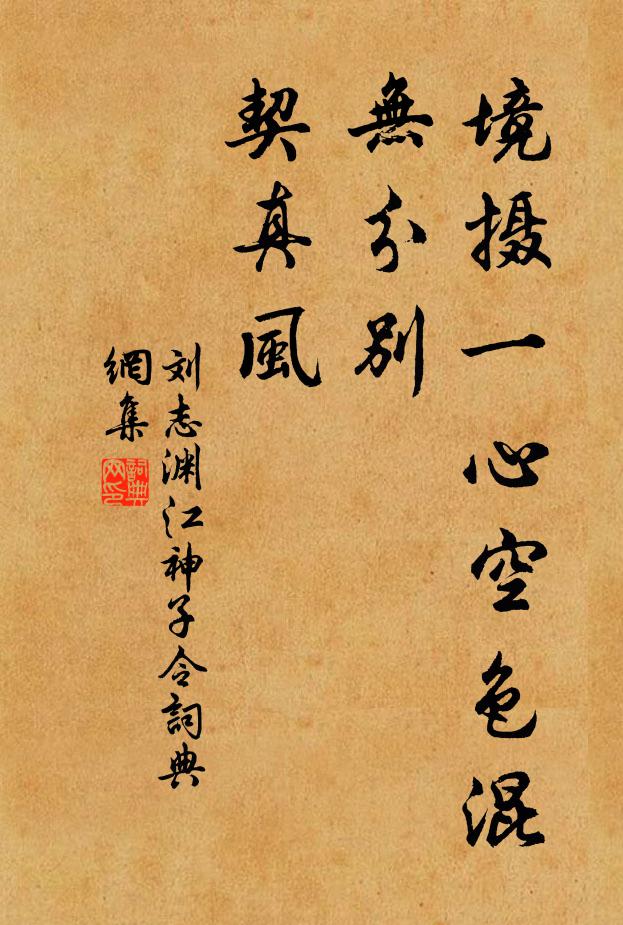 境摄一心空色混
無分别
契真風
刘志渊江神子令詞典
網集
詞典
网印